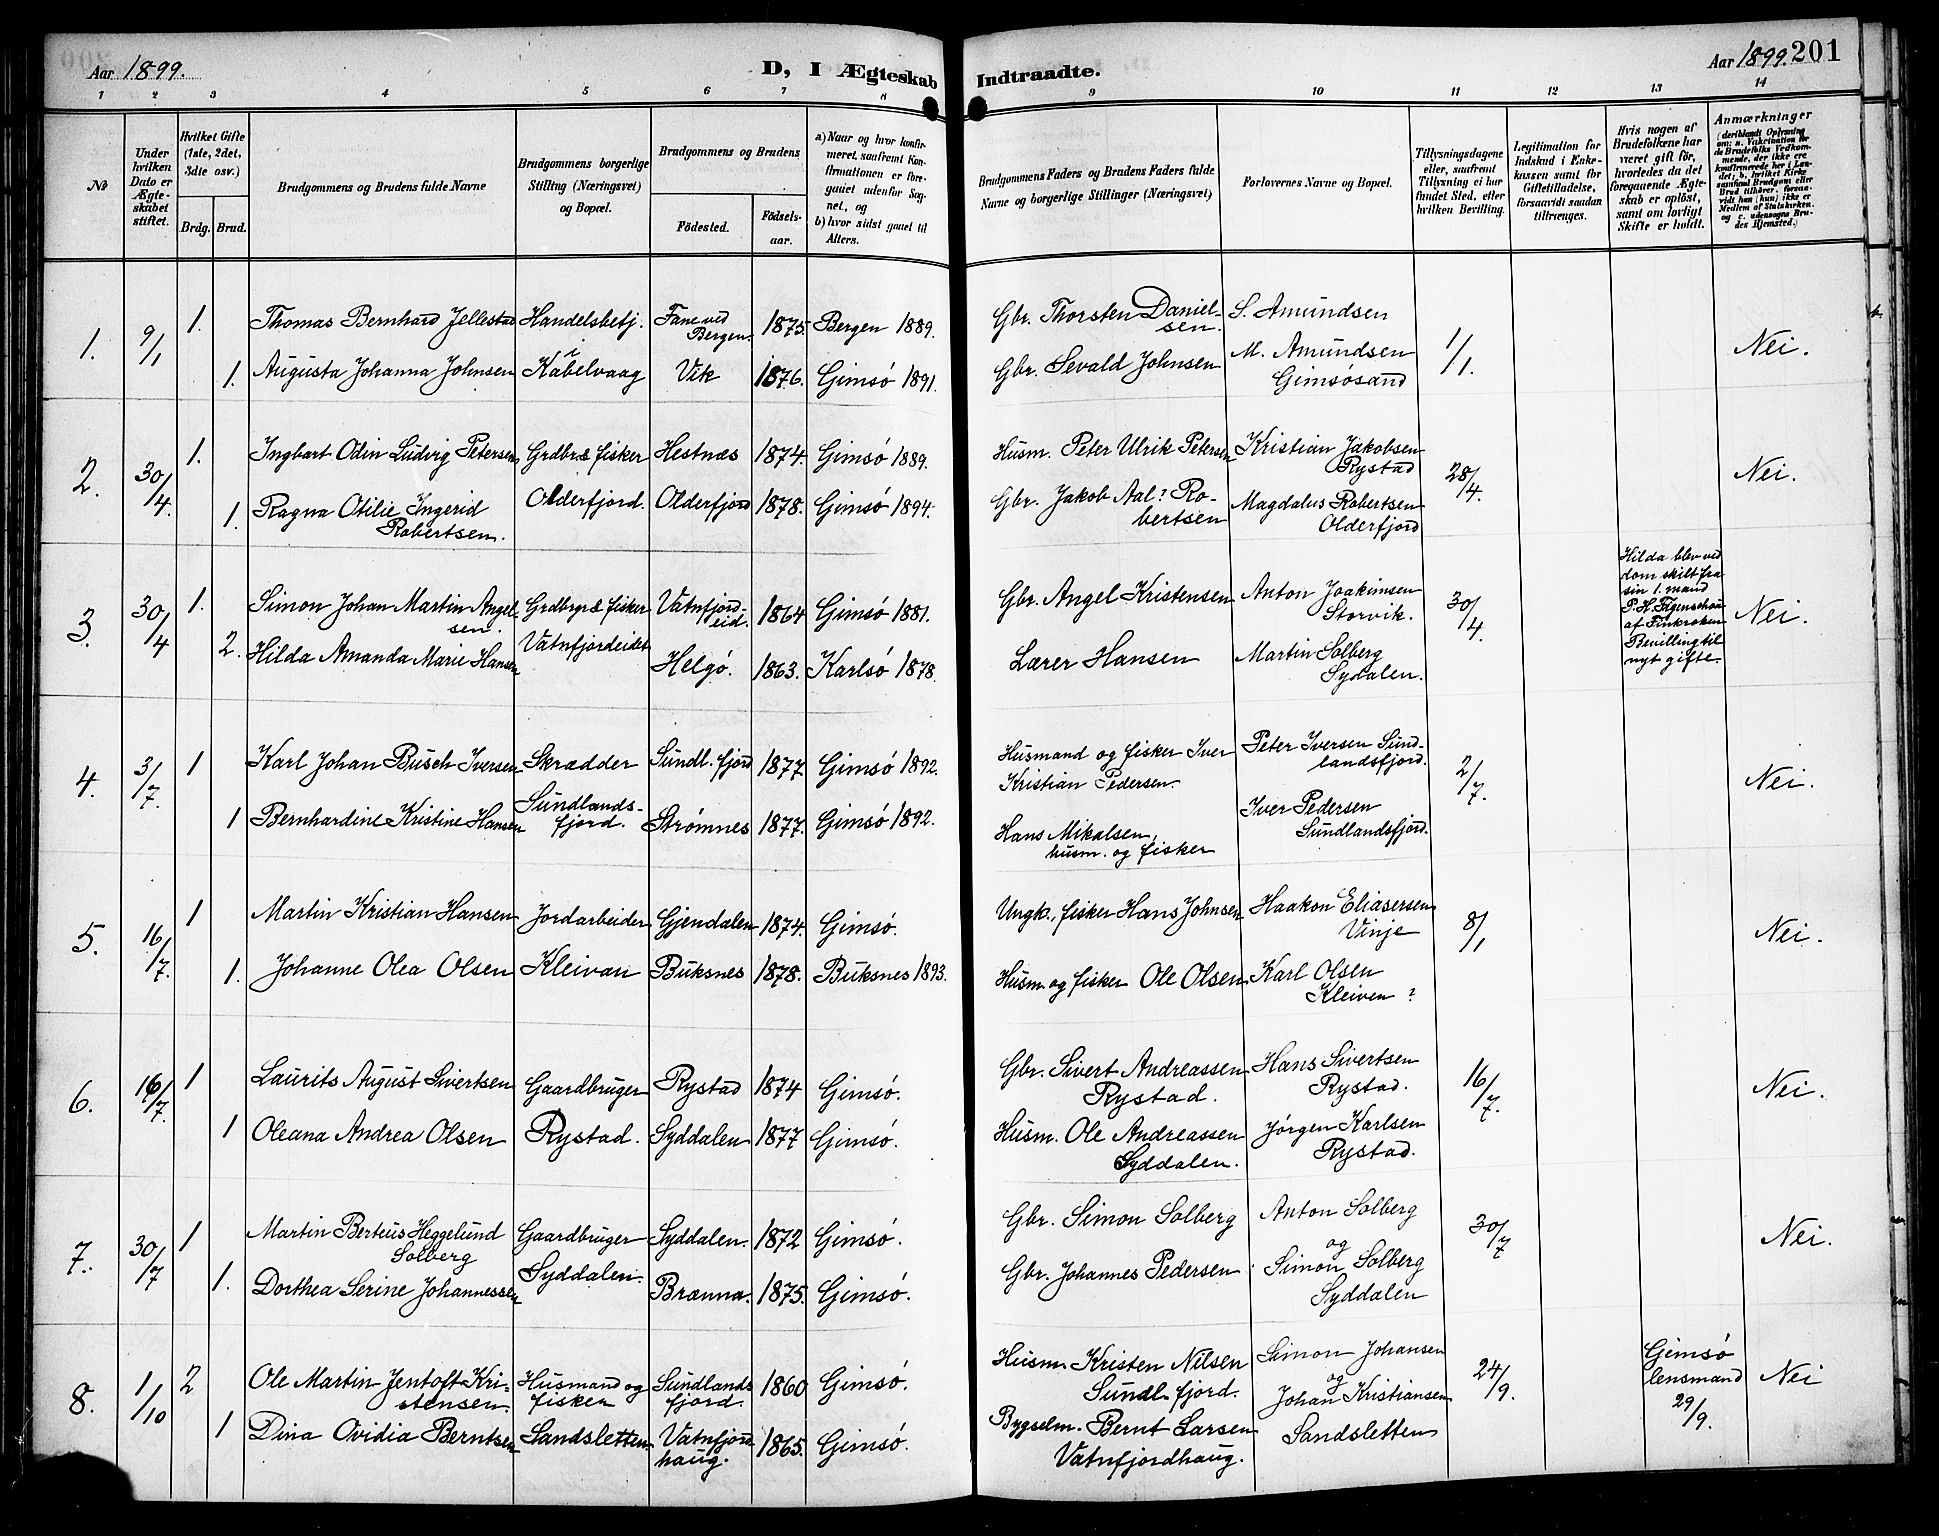 Aar 1899.
D, I Ægteskab Indtraadte.
Aar 1899. 201
1 2 3 4 5 6 7 8 9 10 11 12 13 14
No
Under hvilken Dato er Ægteskabet stiftet.
Hvilket Gifte (1ste, 2det, 3die osv.)
Brdg. Brud.
Brudgommens og Brudens fulde Navne
Brudgommens borgerlige Stilling (Næringsvei) og Bopæl.
Brudgommens og Brudens
Fødested.
Fødselsaar.
a) Naar og hvor konfirmeret, saafremt Konfirmationen er foregaaet udenfor Sognet, og
b) hvor sidst gaaet til Alters.
Brudgommens Faders og Brudens Faders fulde Navne og borgerlige Stillinger (Næringsvei)
Forlovernes Navne og Bopæl.
Tillysningsdagene eller, saafremt Tillysning ei har fundet Sted, efter hvilken Bevilling.
Legitimation for Indskud i Enkekassen samt for Giftetilladelse, forsaavidt saadan tiltrænges.
Hvis nogen af Brudefolkene har været gift før, hvorledes da det foregaaende Ægteskab er opløst, samt om lovligt Skifte er holdt.
Anmærkninger
(deriblandt Oplysning om: a. Vakcination for de Brudefolks Vedkommende, der ikke ere konfirmerede her i Landet; b. hvilket Kirkesamfund Brudgom eller Brud tilhører, forsaavidt han (hun) ikke er Medlem af Statskirken, og c. udensogns Brudes Hjemsted.)
1. 9/1 1. Thomas Bernhard Jellestad Handelsbetj. Fane ved Bergen. 1875. Bergen 1889. Gbr. Thorsten Danielsen. S. Amundsen
1. Augusta Johanna Johnsen i Kabelvaag Vik 1876. Gimsö 1891. Gbr. Sevald Johnsen M. Amundsen Gimsösand 1/1. Nei.
2. 30/4 1. Ingbart Odin Ludvig Petersen Grdbr. & fisker Hestnæs 1874. Gimsö 1889. Husm. Peter Ulrik Petersen Kristian Jakobsen Rystad 28/4. Nei.
1. Ragna Otilie Ingerid Robertsen. Olderfjord. Olderfjord 1878. Gimsö 1894. Gbr. Jakob Aal? Robertsen Magdalus Robertsen Olderfjord
3. 30/4 1. Simon Johan Martin Angelsen. Grdbrg. & fisker Vatnfjordeid. 1864 Gimsö 1881. Gbr. Angel Kristensen Anton Joakimsen Storvik. 30/4. Nei.
2. Hilda Amanda Marie Hansen Vatnfjordeidet Helgö. 1863. Karlsö 1878. Lærer Hansen Martin Solberg Sydalen.
Hilda blev ved
dom skilt fra
sin 1. mand
P. H. Figenschou
af Finkroken
Bevilling til
nyt gifte.
4. 3/7 1 Karl Johan Busch Iversen Skrædder Sundl.fjord 1877. Gimsö 1892. Husmand og fisker Iver Kristian Pedersen. Peter Iversen Sundlandsfjord. 2/7. Nei.
1 Bernhardine Kristine Hansen Sundlandsfjord. Strømnes 1877. Gimsö 1892. Hans Mikalsen, husm. og fisker Iver Pedersen Sundlandsfjord.
5. 16/7. 1 Martin Kristian Hansen Jordarbeider Gjendalen 1874. Gimsö. Ungk., fisker Hans Johnsen Haakon Eliasersen Vinje 8/1 Nei.
1. Johanne Olea Olsen Kleivan Buksnes 1878. Buksnes 1893. Husm. og fisker Ole Olsen Karl Olsen Kleiven ?
6. 16/7. 1 Laurits August Sivertsen Gaardbruger Rystad 1874 Gimsö. Gbr. Sivert Andreassen Rystad. Hans Sivertsen Rystad. 16/7. Nei.
1 Oleana Andrea Olsen Rystad. Syddalen 1877 Gimsö. Husm. Ole Andreassen Syddalen. Jørgen Karlsen Rystad.
7. 30/7 1 Martin Berteus Heggelund Solberg Gaardbruger Syddalen. 1872 Gimsö. Gbr. Simon Solberg Anton Solberg og 30/7 Nei.
1. Dorthea Serine Johannessen Syddalen. Brænna. 1875. Gimsö. Gbr. Johannes Pedersen Simon Solberg Syddalen
8. 1/10 2 Ole Martin Jentoft Kristensen. Husmand og fisker Sundlandsfjord 1860 Gimsö. Husm. Kristen Nilsen Sundl.fjord. Simon Johansen og 24/9. Gimsö lensmand 29/9. Nei
1 Dina Ovidia Berntsen Sandsletten Vatnfjordhaug. 1865. Gimsö. Bygselm. Bernt Larsen Vatnfjordhaug. Johan Kristiansen Sandsletten